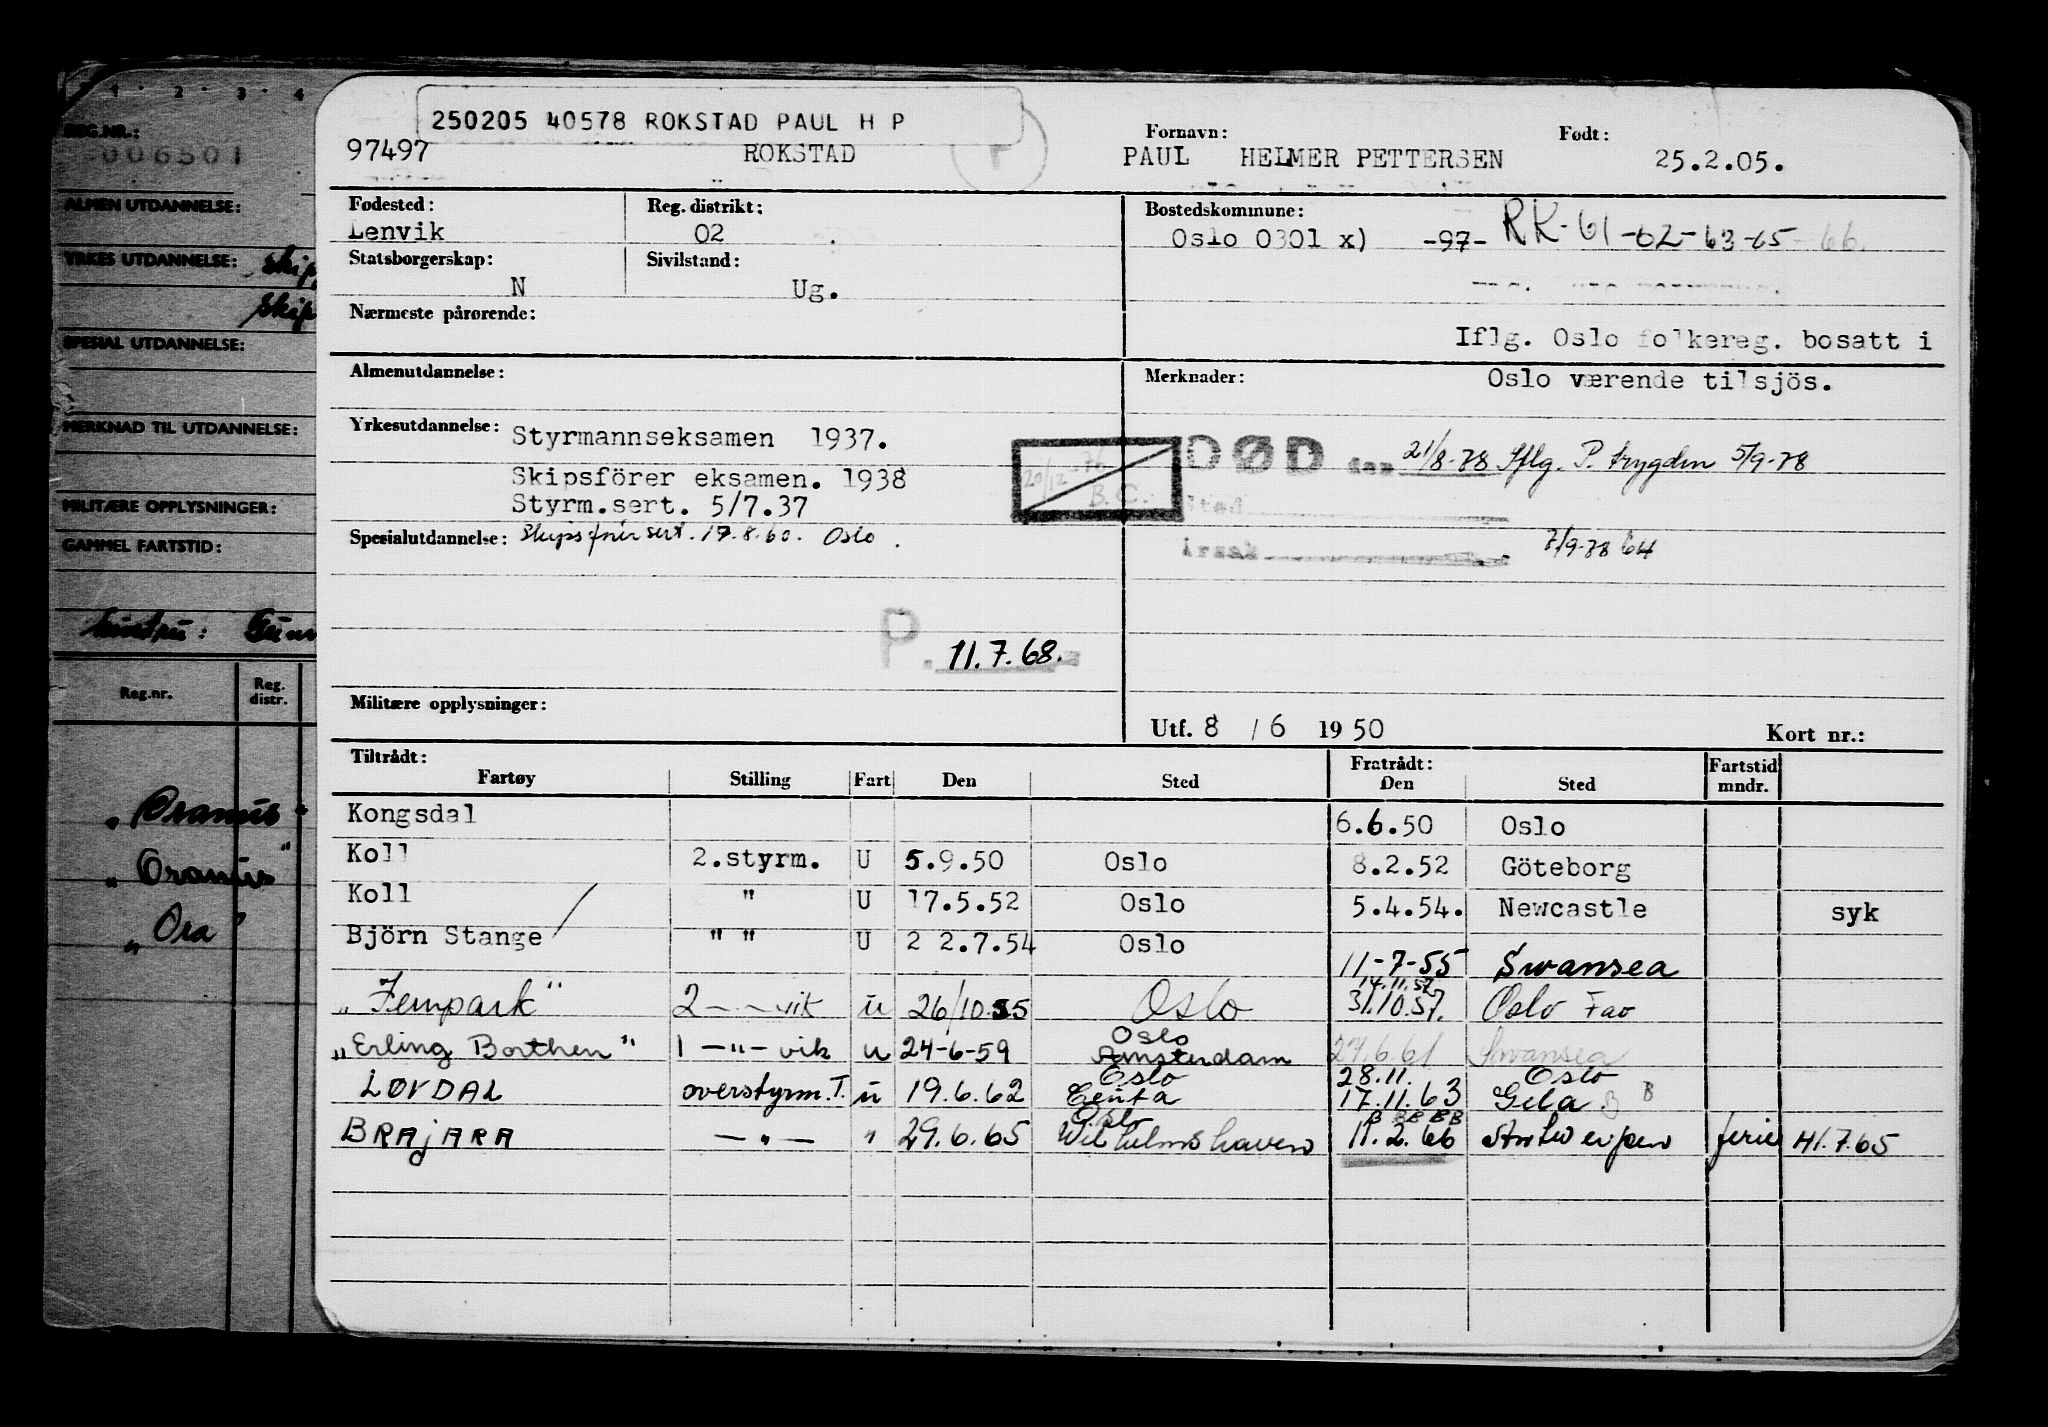 1 · 2 · 3 · 4
REG.NR.:
006501
ALMEN UTDANNELSE:
YRKES UTDANNELSE: Skip
Skip
SPESIAL UTDANNELSE:
MERKNAD TIL UTDANNELSE:
MILITÆRE OPPLYSNINGER:
GAMMEL FARTSTID:
Reg.nr. Reg. distr.
"Oranus"
"Oranus"
"Ora
250205 40578 ROKSTAD PAUL H P
Fornavn: Født:
97497 ROKSTAD P PAUL HELMER PETTERSEN 25.2.05.
Fødested: Reg. distrikt: Bostedskommune:
Lenvik 02 Oslo 0301 x) -97- RK-61-62-63-65-66.
Statsborgerskap: Sivilstand:
N Ug.
Nærmeste pårørende:
Iflg. Oslo folkereg. bosatt i
Almenutdannelse: Merknader: Oslo værende tilsjös.
Yrkesutdannelse: Styrmannseksamen 1937.
20/12-76 B.C. DØD den 21/8-78 Iflg. P. trygden 5/9-78
Skipsförer eksamen. 1938
Styrm.sert. 5/7.37 Sted
Spesialutdannelse: Skipsfører sert. 17.8.60. Oslo.
Årsak 7/9-78 64
P. 11.7.68.
Militære opplysninger:
Utf. 8 / 6 1950 Kort nr.:
Tiltrådt: Fratrådt: Fartstid
Fartøy Stilling Fart Den Sted Den Sted mndr.
Kongsdal 6.6.50 Oslo
Koll 2.styrm. U 5.9.50 Oslo 8.2.52 Göteborg
Koll " U 17.5.52 Oslo 5.4.54. Newcastle syk
Björn Stange " " U 2 2.7.54 Oslo 11-7-55 Swansea
14.11.57
"Fernpark" 2 - - vik u 26/10.55 Oslo 31.10.57. Oslo Fav
Oslo
"Erling Borthen" 1 -"- vik u 24-6-59 Amsterdam 27.6.61 Swansea
Oslo 28.11. Oslo
LØVDAL overstyrm.T. u 19.6.62 Ceuta 17.11.63 Gela B B
Oslo B BB BB
BRAJARA -"- " 29.6.65 Wilhelmshaven 11.2.66 Antwerpen ferie 41.7.65